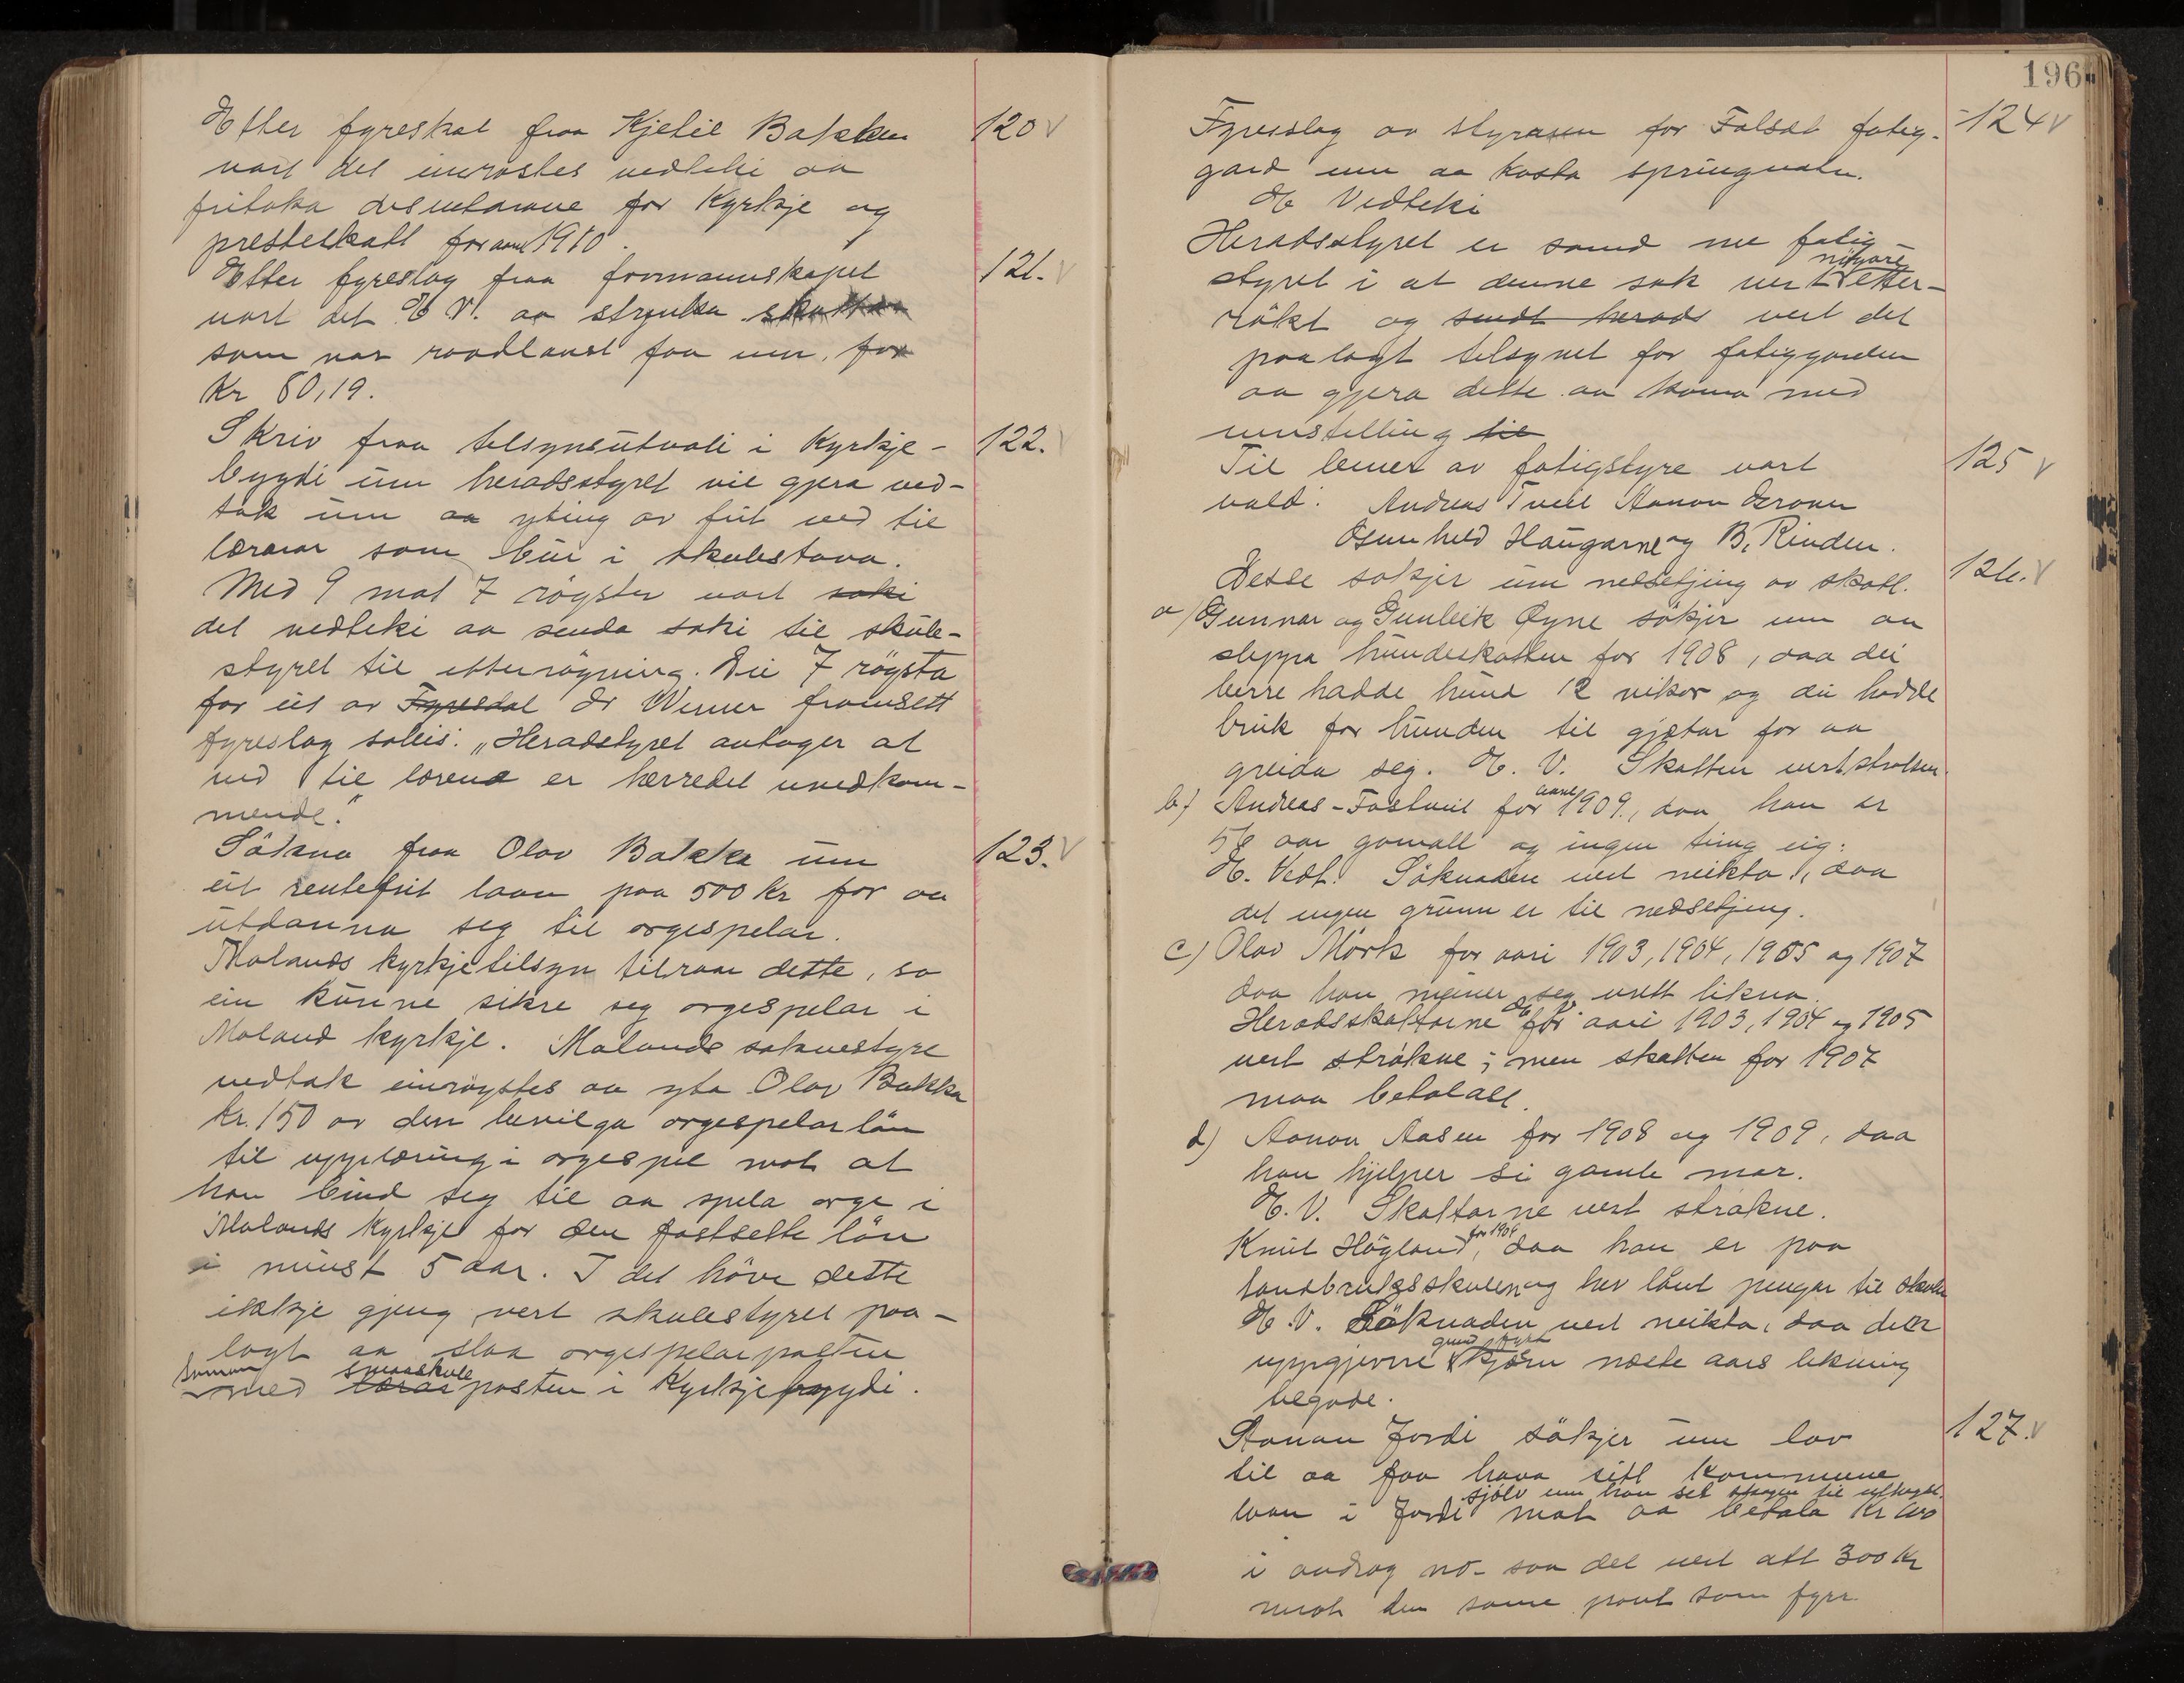 Etter fyreskot fraa Kjetil Bakken 120
vart det einrøstes vedteki aa
fritaka disentarane for Kyrkje og
presteskatt for aaret 1910.
Etter fyreslag fraa formannskapet 121.
vart det E. V. aa strjuka skatten
som var raadlaust faa inn, for
Kr 80,19.
Skriv fraa tilsynsutvali i Kyrkje- 122.
bygdi um heradsstyret vil gjera ved-
tak um aa yting av frit ved til
lærarar som bur i skulestova.
Med 9 mot 7 røyster vart saki
det vedteki aa senda saki til skule-
styret til etterrøgning. Dei 7 røysta
for eit av Fyresdal Dr Werner framsett
fyreslag soleis: „Heradstyret antager at
ved til lærerne er herredet uvedkom-
mende."
Søkna fraa Olav Bakka um 123.
eit rentefrit laan paa 500 Kr for aa
utdanna seg til orgespelar.
Molands kyrkjetilsyn tilraar dette, so
ein kunne sikre seg orgespelar i
Moland kyrkje. Molands soknestyre
vedtak einrøystes aa yta Olav Bakka
Kr. 150 av den bevilga orgespelarløn
til upplæring i orgespel mot at
han bind seg til aa spela orge i
Molands Kyrkje for den fastsette løn
i minst 5 aar. I det høve dette
ikkje gjeng vert skulestyret paa-
lagt aa slaa orgespelarposten
saman med lærar smaaskule posten i Kyrkjebygdi.
196
Fyreslag av styraren for Folsæt fatig- 124
gard um aa kosta springvatn.
E Vedteki
Heradsstyret er samd me fatig-
styret i at denne sak vert nøgare etter-
røkt og sendt herads vert det
paalagt tilsynet for fatiggarden
aa gjera dette aa koma med
innstelling til
Til lemer av fatigstyre vart 125
vald: Andreas Tveit Aanon
Osmund Haugarne og B. Rinden.
Desse søkjer um nedsetjing av skatt. 126.
a) Gunnar og Gunleik Øyne søkjer um aa
sleppa hundeskatten for 1908, daa dei
berre hadde hund 12 vikor og dei hadde
bruk for hunden til gjætar for aa
greida seg. E. V. Skatten vert stroken.
b) Andreas Fastveit for aaret 1909, daa han er
58 aar gamall og ingen ting eig.
E. Vedt. Søknaden vert neikta, daa
det ingen grunn er til nedsetjing.
c) Olav Mørk for aari 1903, 1904, 1905 og 1907
daa han meiner seg urett likna.
E V. Heradsskattarne for aari 1903, 1904 og 1905
vert strokne; men skatten for 1907
maa betalast.
d) Aanon Aasen for 1908 og 1909, daa
han hjelper si gamle mor.
E. V. Skattarne vert strokne.
Knut Høgland for 1909, daa han er paa
landbruksskulen og hev lånt pengar til skulen
E. V. Søknaden vert neikta, daa den
uppgjevne grunn kjem næste aars likning
tilgode.
Aanon Jordi søkjer um lov 127.
til aa faa hava sitt kommune
sjølv um han sel skogen til
laan i Jordi mot aa betala Kr 200
i avdrag no - saa det vert att 300 Kr
mot den same pant som fyrr.